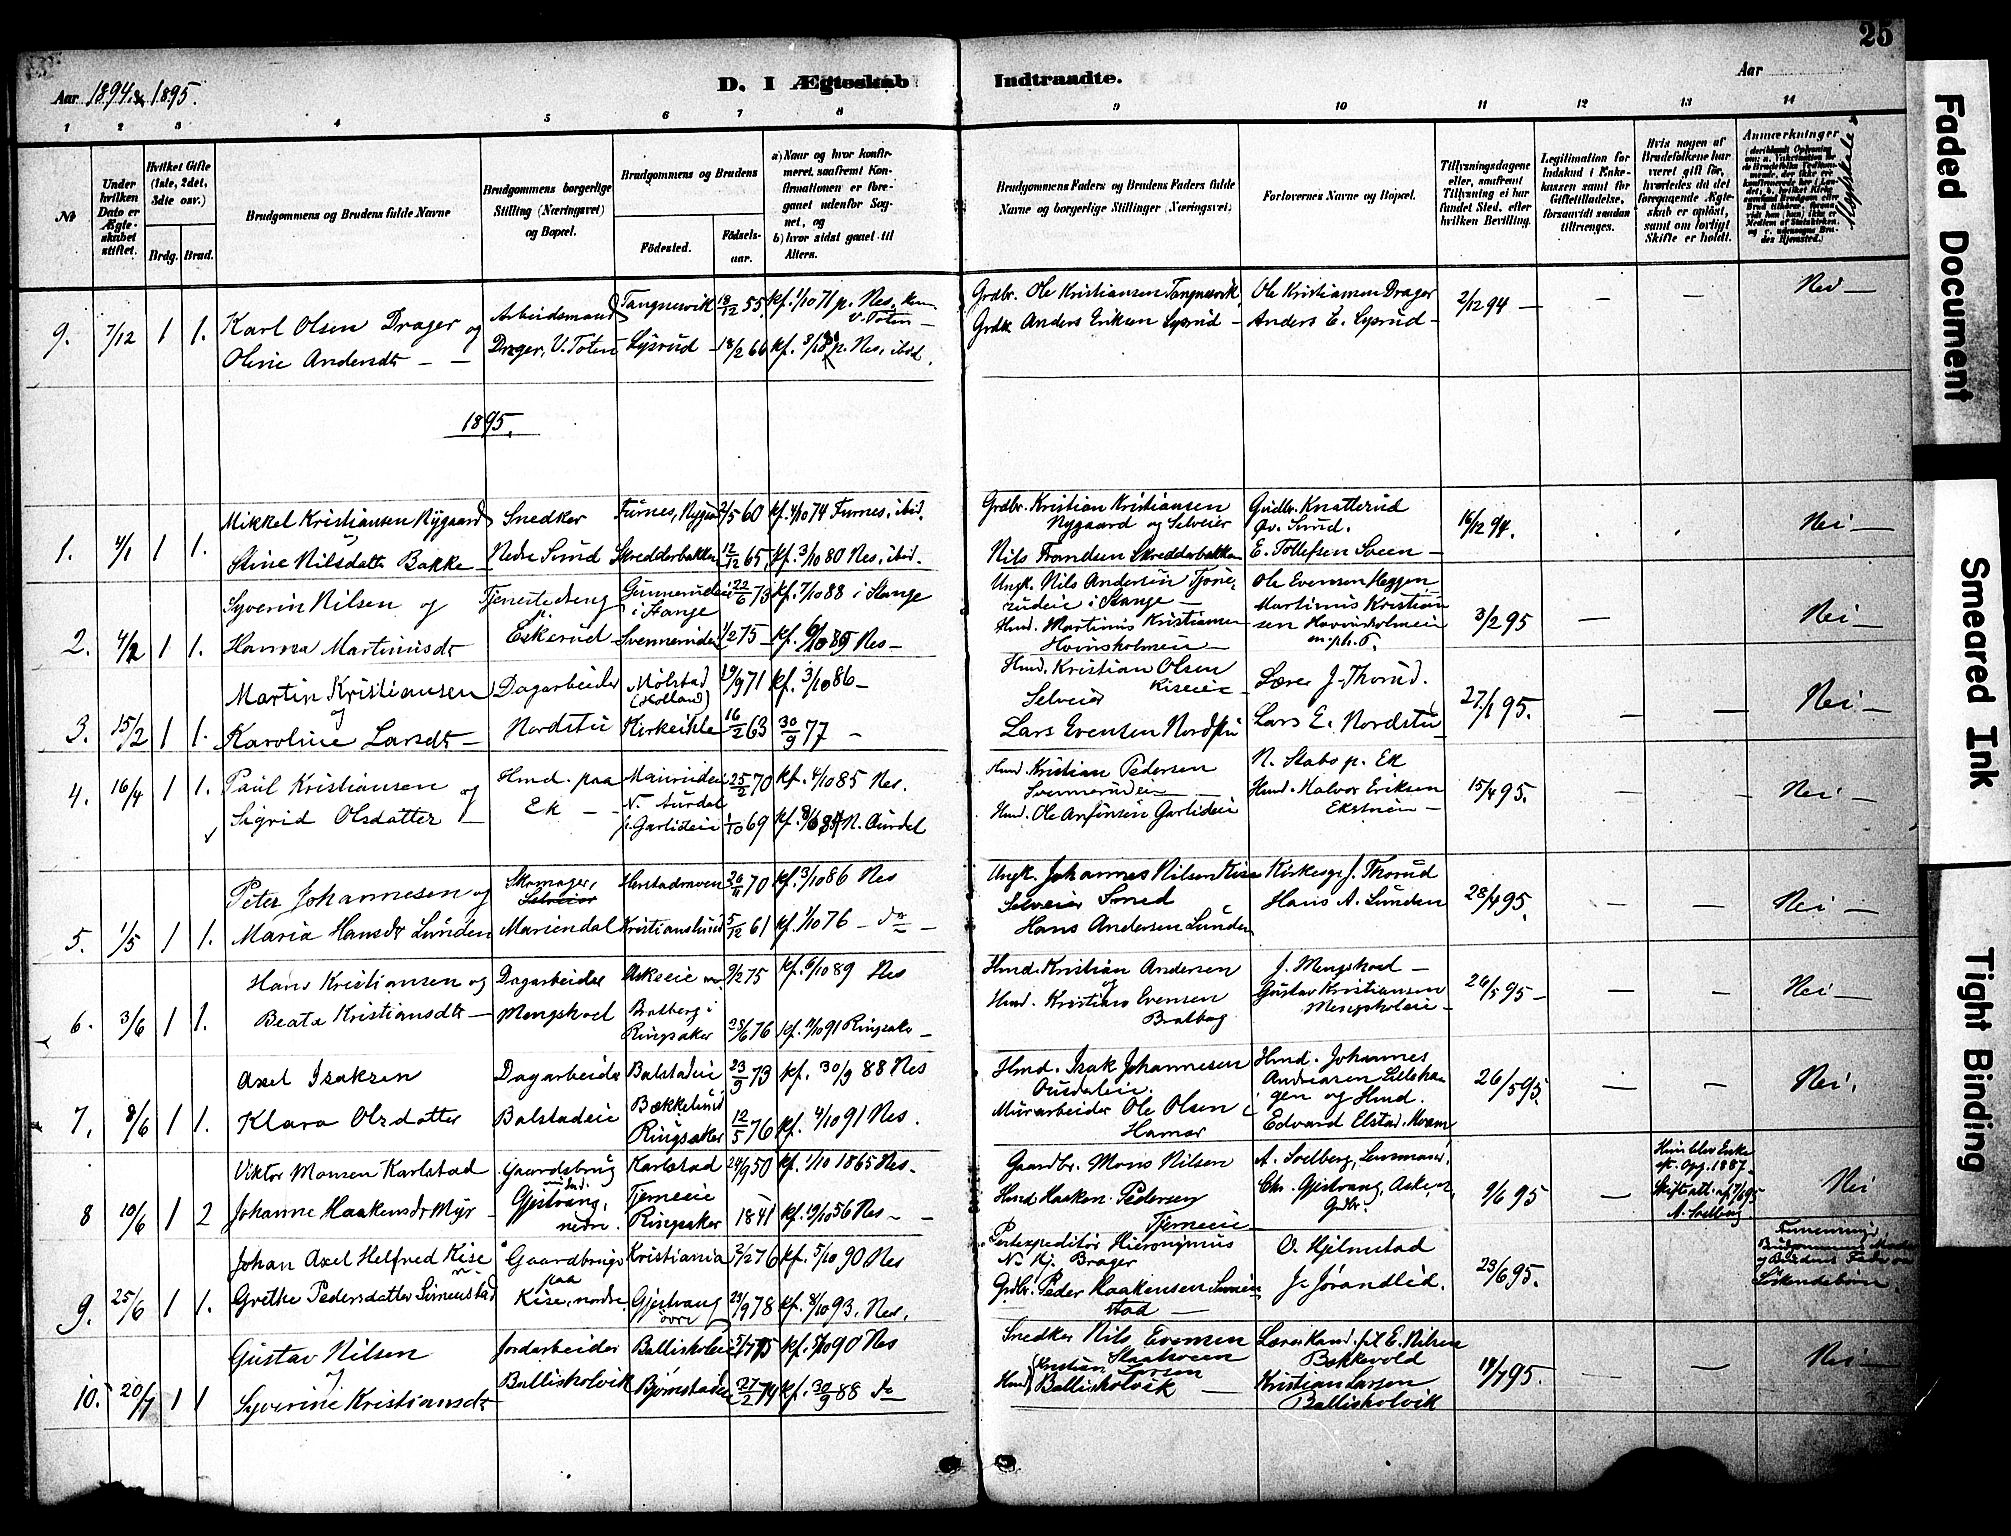 25
Aar 1894 & 1895.
D. I Ægteskab Indtraadte.
Aar
1 2 3 4 5 6 7 8 9 10 11 12 13 14
No
Under hvilken Dato er Ægteskabet stiftet.
Hvilket Gifte (1ste, 2det, 3die osv.)
Brdg. Brud.
Brudgommens og Brudens fulde Navne
Brudgommens borgerlige Stilling (Næringsvei) og Bopæl.
Brudgommens og Brudens
Födested.
Födsels-aar.
a) Naar og hvor konfirmeret, saafremt Konfirmationen er foregaaet udenfor Sognet, og
b) hvor sidst gaaet til Alters.
Brudgommens Faders og Brudens Faders fulde Navne og borgerlige Stillinger (Næringsvei).
Forlovernes Navne og Bopæl.
Tillysningsdagene eller, saafremt Tillysning ei har fundet Sted, efter hvilken Bevilling.
Legitimation for Indskud i Enkekassen samt for Giftetilladelse, forsaavidt saadan tiltrænges.
Hvis nogen af Brudefolkene har været gift før, hvorledes da det foregaaende Ægteskab er oplöst, samt om lovligt Skifte er holdt.
Anmærkninger
9. 7/12 1 1. Karl Olsen Drager og Arbeidsmand Tangnesvik 18/12 55 kf. 1/10 71 p. Nes, V. Toten Grdbr. Ole Kristiansen Tangnesvik Ole Kristiansen Drager 2/12 94 — — — Nei —
Oline Andersdt — — Drager, V. Toten Lysrud — 18/2 66 p. Nes, ibid. Anders Eriksen Lysrud — Anders E. Lysrud —
1895.
1. 4/1 1 1. Mikkel Kristiansen Nygaard Snedker Furnes, 2/5 60 kf. 4/10 74 Furnes, ibid. Grdbr. Kristian Kristiansen Nygaard og Selveier Gudbr. Knatterud Øv. Smud. 16/12 94. Nei —
Stine Nilsdatter Bakke Nedre Smud Skredderbakken 12/12 65 kf. 3/10 80 Nes, ibid. Nils Trondsen Skredderbakken E. Tollefsen Sveen —
2. 4/2 1 1. Syverin Nilsen og Tjenestedreng i Stange 22/6 73 kf. 7/10 88 i Stange Ungk. Nils Andersen i Stange — Ole Evensen Heggen 3/2 95 — Nei —
Hanna Martinusdt Eskerud 1/2 75 — Nes — Hmd. Martinus Kristiansen Martinus Kristiansen
3. 15/2 1 1. Martin Kristiansen Dagarbeider Mølstad (Holland) 19/9 71 kf. 3/10 86 — Hmd. Kristian Olsen Kiseeie Selveier Lærer J. Thorud. 27/1 95. — — Nei —
og Karoline Larsdt — Nordstu 16/2 63 30/9 77 — Lars Evensen Nordstu Lars E. Nordstu
4. 16/4 1 1. Paul Kristiansen og Hmd. paa Ek — 25/2 70 kf. 4/10 85 Nes. Hmd. Kristian Pedersen N. Stabo p. Ek 15/4 95. — — Nei —
Sigrid Olsdatter — N. Aurdal 1/10 69 N. Aurdal Hmd. Ole Arfinsen Garlideie Hmd. Halvor Eriksen
5. 1/5 1 1. Peter Johannesen og Skomager, Selveier 26/11 70 kf. 3/10 86 Nes Ungk. Johannes Nilsen Kise Selveier Smed Kirkesgr. J. Thorud 28/4 95. — — Nei —
Maria Hansdt Lunden Mariendal Kristianslund 5/12 61 kf. 1/10 76 — do — Hans Andersen Lunden Hans A. Lunden
6. 3/6 1 1. Hans Kristiansen og Dagarbeider 9/2 75 kf. 6/10 89 Nes Hmd. Kristian Andersen og J. Mengshoel — 26/5 95 — — — Nei —
Beata Kristiansdt — Mengshoel Bratberg i Ringsaker 25/6 76 Ringsaker — Hmd. Kristians Evensen Bratberg Gustav Kristiansen Mengshoeleie —
7. 8/6 1 1. Axel Isaksen Dagarbeider Balstadeie 23/9 73 kf. 30/9 88 Nes Hmd. Isak Johannesen Hmd. Johannes Andreasen Lilshagen og Hmd. 26/5 95. — — Nei.
Klara Olsdatter Balstadeie Bækkelund Ringsaker 12/5 76 kf. 4/10 91 Nes. Murarbeider Ole Olsen i Hamar Edvard Elstad,
8 10/6 1 2 Viktor Monsen Karlstad Gaardsbrug Karlstad 24/9 50 kf. 1/10 1865 Nes — Gaardbr. Mons Nilsen A. Svelberg, Lensmand, 9/6 95 — Hun blev Enke 1887. A. Svelberg Nei
Johanne Haakensdt Myr — Gjestvang, nedre. Tjerneeie Ringsaker 1841 kf. 19/10 56 Nes — Hmd Haaken Pedersen Tjerneeie Chr. Gjestvang, Grdbr.
9. 25/6 1 1. Johan Axel Helfred Kise Gaardbruger Kristiania 2/2 76 kf. 5/10 90 Nes Postexpeditør Hieronymus N. Hj. Brager O. Hjelmstad 23/6 95. Brudens Fader Søskendebørn.
Grethe Pedersdatter Simenstad paa Kise, nordre Gjestvang øvre 23/9 78 kf. 8/10 93, Nes. Grdbr. Peder Haakensen Simenstad — J. Jørandlid.
10. 20/7 1 1 Gustav Nilsen Jordarbeider Balliskoleie 5/1 75 kf. 5/10 90 Nes Snedker Nils Evensen E. Nilsen Bakkevold 14/7 95. — Nei —
og Syverine Kristiansdt Balliskolvik 27/2 74 kf. 30/9 88 do Hmd Kristian Larsen Balliskolvik — Kristian Larsen Balliskolvik
Faded Document
Smeared Ink
Tight Binding